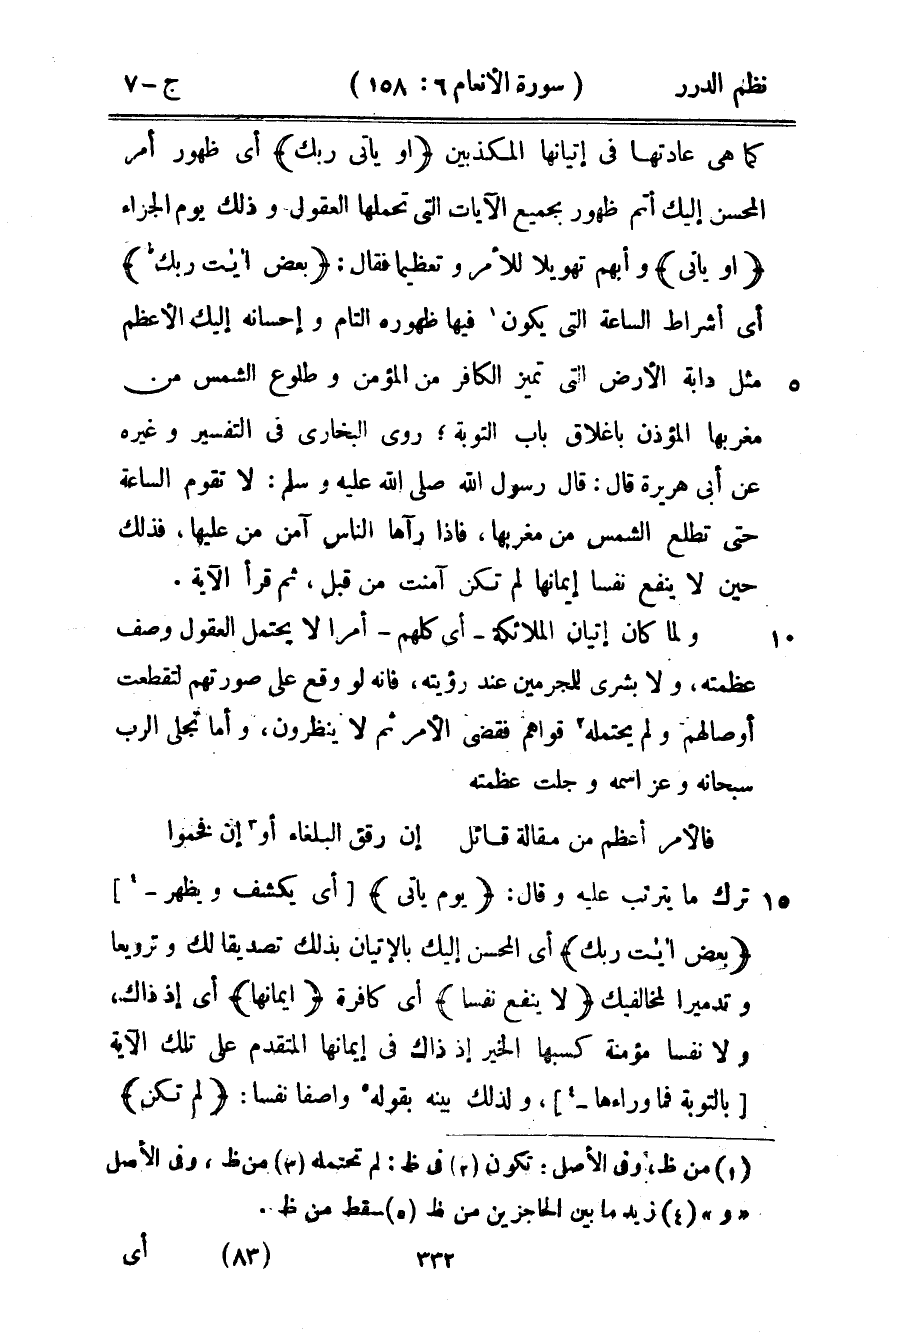 نظم الدرر ( سورة الأنعام ٦ : ١٥٨ ) ج – ٧
كما هى عادتها فى إتيانها المكذبين ﴿ او ياتى ربك ﴾ أى ظهور أمر
المحسن إليك أتم ظهور بجميع الآيات التى تحملها العقول و ذلك يوم الجزاء
﴿ او ياتى ﴾ و أبهم تهويلا للأمر و تعظيما فقال : ﴿ بعض اٰيٰت ربك ؕ ﴾
أى أشراط الساعة التى يكون ١ فيها ظهوره التام و إحسانه إليك الأعظم
٥ مثل دابة الأرض التى تميز الكافر من المؤمن و طلوع الشمس من
مغربها المؤذن باغلاق باب التوبة ؛ روى البخارى فى التفسير و غيره
عن أبى هريرة قال : قال رسول الله صلى الله عليه و سلم : لا تقوم الساعة
حتى تطلع الشمس من مغربها ، فاذا رآها الناس آمن من عليها ، فذلك
حين لا ينفع نفسا إيمانها لم تكن آمنت من قبل ، ثم قرأ الآية .
١٠ و لما كان إتيان الملائكة ـ أى كلهم ـ أمرا لا يحتمل العقول وصف
عظمته ، و لا بشرى للمجرمين عند رؤيته ، فانه لو وقع على صورتهم لتقطعت
أوصالهم و لم يحتمله ٢ قواهم فقضى الأمر ثم لا ينظرون ، و أما تجلى الرب
سبحانه و عز اسمه و جلت عظمته
فالأمر أعظم من مقالة قائل إن رقق البلغاء أو ٣ إن فخموا
١٥ ترك ما يترتب عليه و قال : ﴿ يوم ياتى ﴾ [ أى يكشف و يظهر ـ ٤ ]
﴿ بعض اٰيٰت ربك ﴾ أى المحسن إليك بالإتيان بذلك تصديقا لك و ترويعا
و تدميرا لمخالفيك ﴿ لا ينفع نفسا ﴾ أى كافرة ﴿ ايمانها ﴾ أى إذ ذاك ،
و لا نفسا مؤمنة كسبها الخير إذ ذاك فى إيمانها المتقدم على تلك الآية
[ بالتوبة فما وراءها ـ ٤ ] ، و لذلك بينه بقوله ٥ واصفا نفسا : ﴿ لم تكن ﴾
(١) من ظ ، و فى الأصل : تكون (٢) فى ظ : لم تحتمله (٣) من ظ ، و فى الأصل
« و » (٤) زيد ما بين الحاجزين من ظ (٥) سقط من ظ .
٣٣٢ (٨٣) أى